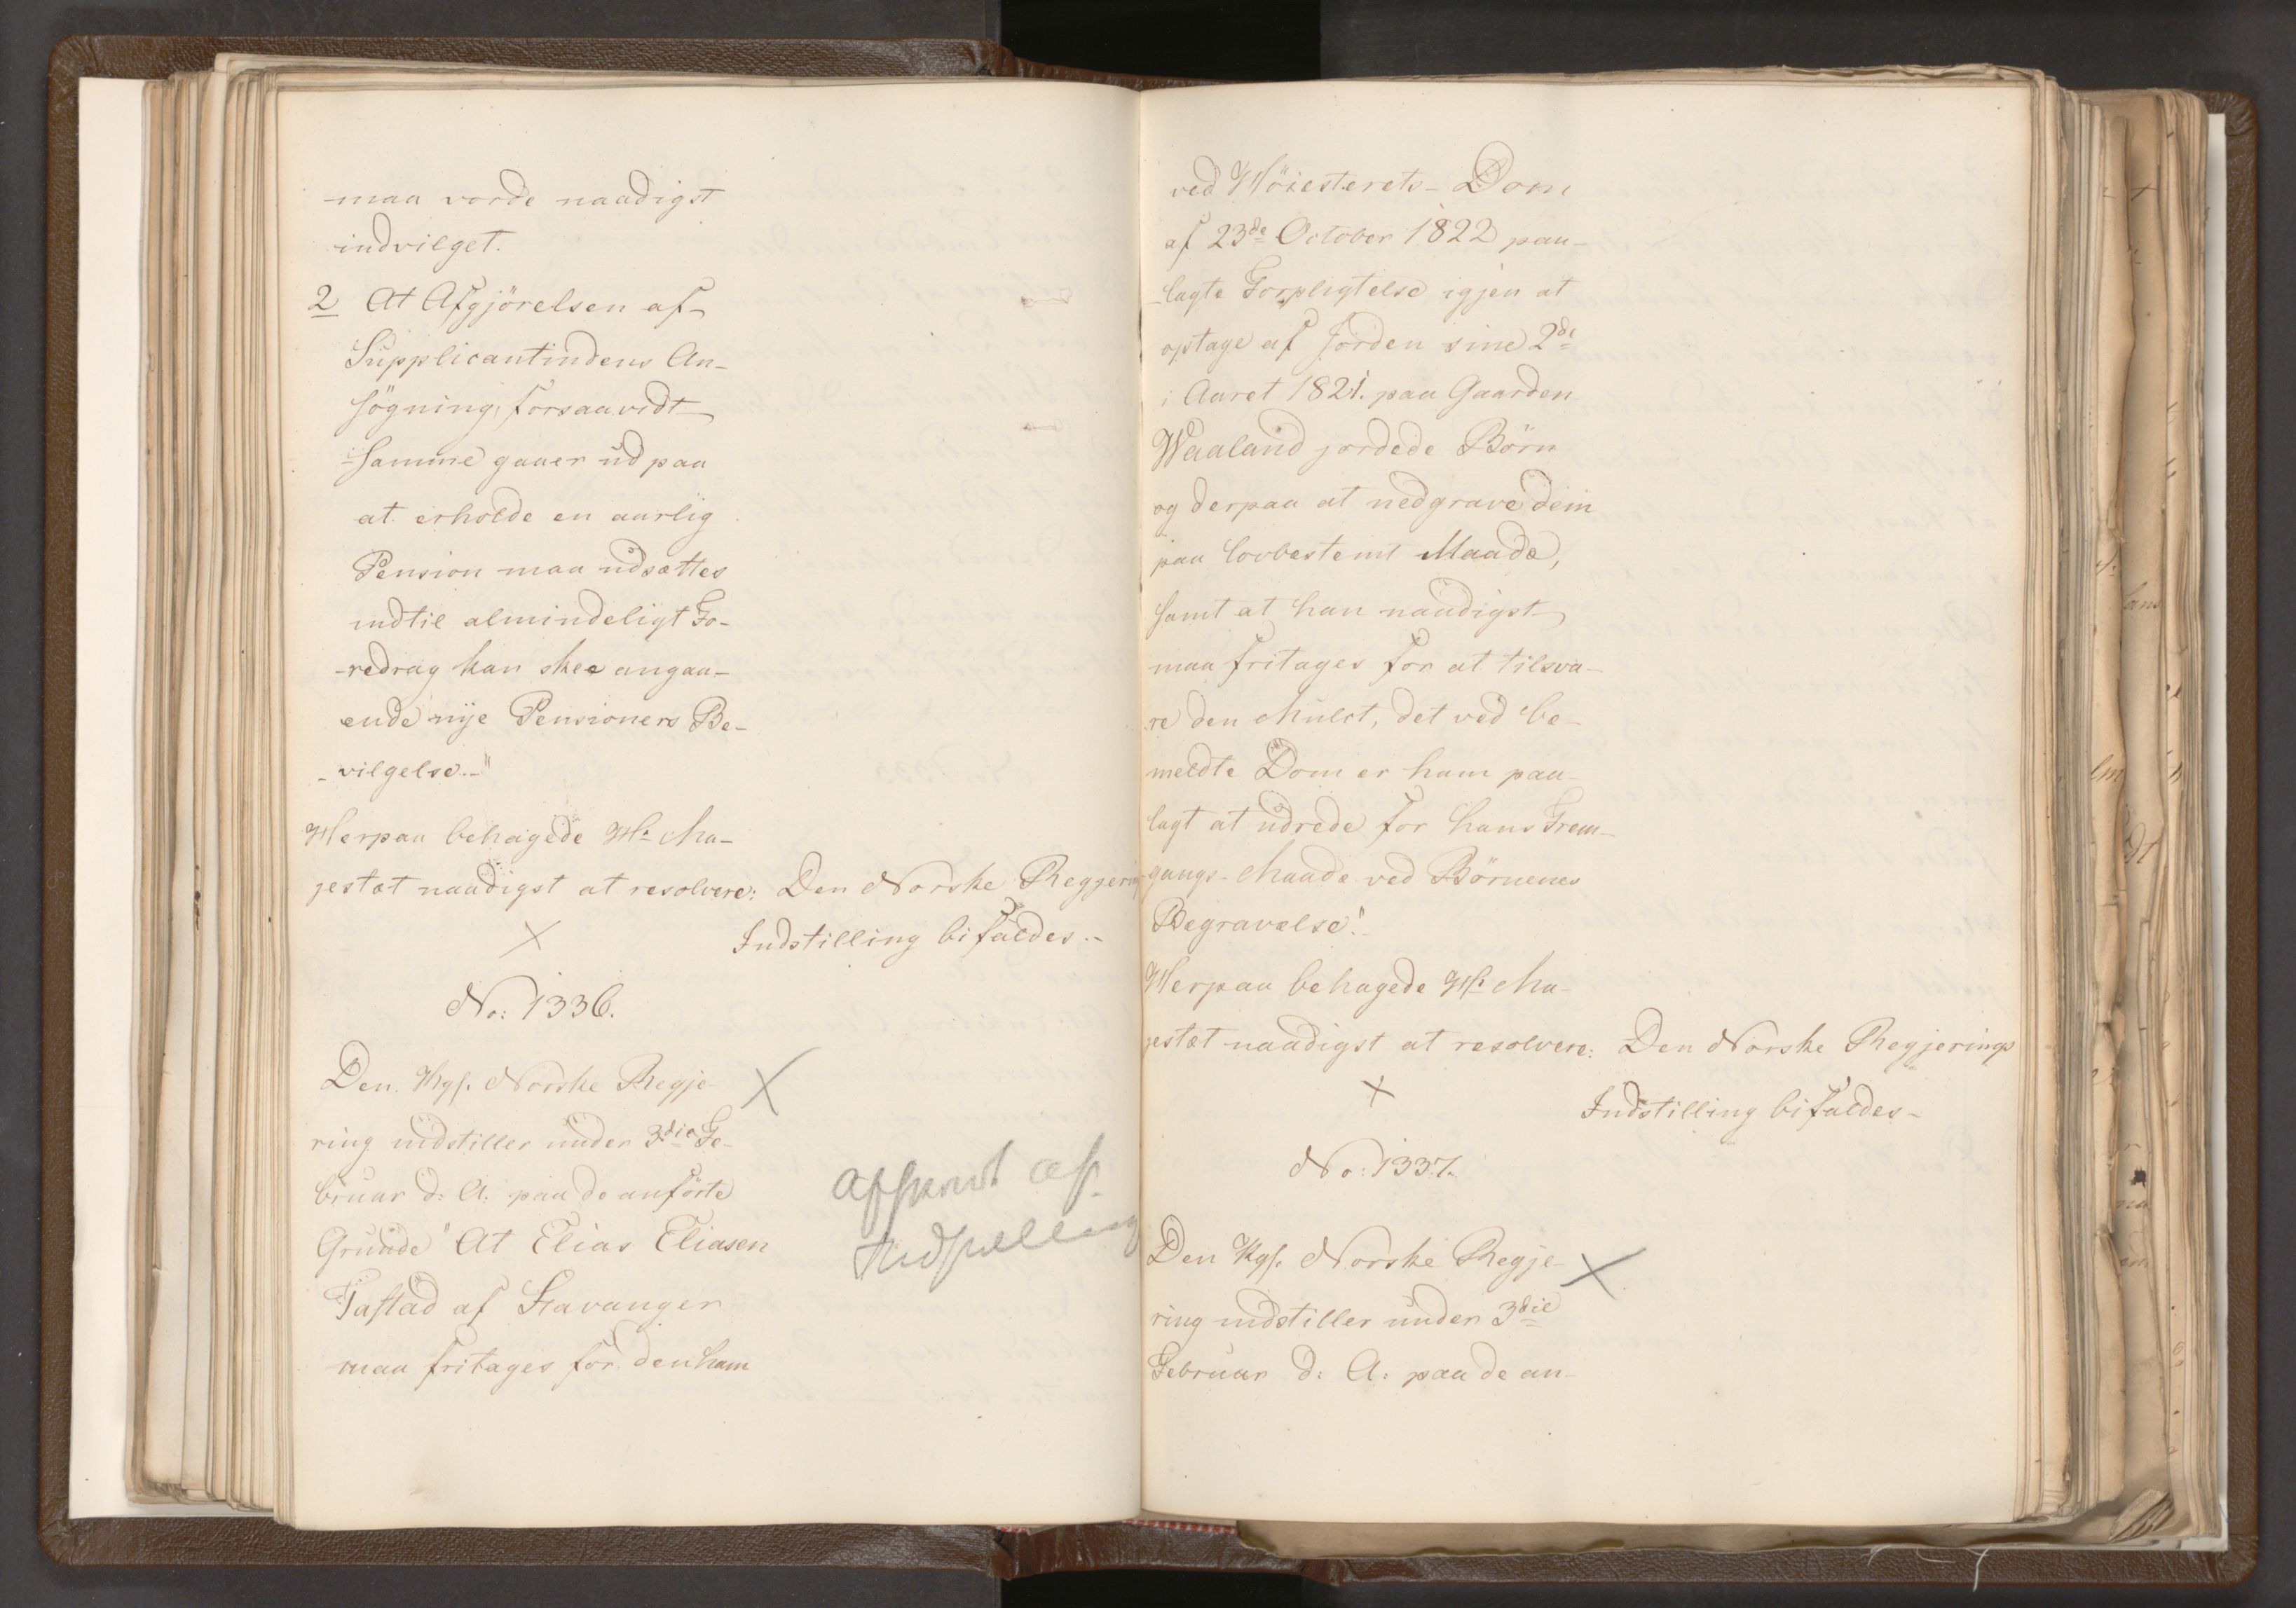 maa vorde naadigst
indvilget.
2 At Afgjörelsen af
Supplicantindens An-
sögning, forsaavidt
samme gaaer ud paa
at erholde en aarlig
Pension maa udsættes
indtil almindeligt Fo-
-redrag kan skee angaa-
ende nye Pensioners Be-
-vilgelse.-"
Herpaa behagede Hs Ma-
jestæt naadigst at resolvere: Den Norske Regjerings
Indstilling bifaldes.-
No: 1336.
Den Kgs. Norske Regje-
ring indstiller under 3die Fe-
bruar d: A: paa de anförte
Grunde "At Elias Eliasen
Tastad af Stavanger
maa fritages for den ham
Afskrevet af
Indstilling
ved Höiesterets-Dom
af 23de October 1822 paa-
-lagte Forpligtelse igjen at
optage af Jorden sine 2de
i Aaret 1821. paa Gaarden
Waaland jordede Börn
og derpaa at nedgrave dem
paa lovbestemt Maade,
samt at han naadigst
maa fritages for at tilsva-
re den Mulct, det ved be-
meldte Dom er ham paa-
lagt at udrede for hans Frem-
gangs-Maade ved Börnenes
Begravelse."-
Herpaa behagede Hs Ma-
jestæt naadigst at resolvere: Den Norske Regjerings
Indstilling bifaldes-
No: 1337.
Den Kgs. Norske Regje-
ring indstiller under 3die
Februar d: A: paa de an-